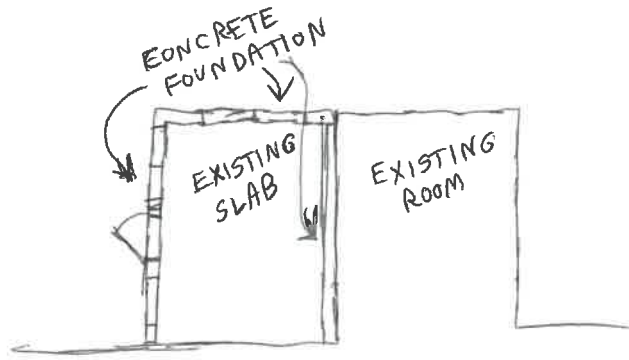 CONCRETE
FOUNDATION
EXISTING
SLAB
EXISTING
ROOM